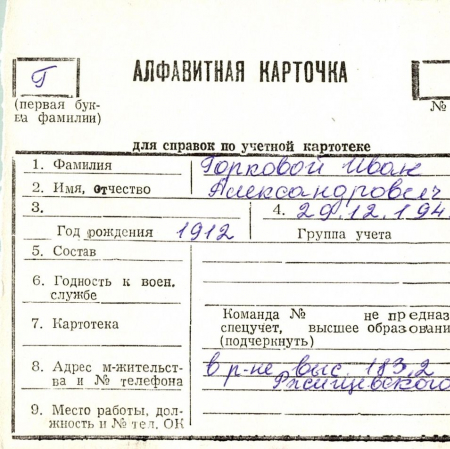 Г
АЛФАВИТНАЯ КАРТОЧКА
(первая бук-
ва фамилии)
№
для справок по учетной картотеке
1. Фамилия Горковой Иван
2. Имя, отчество Александрович
3. 4. 29.12.194
Год рождения 1912 Группа учета
5. Состав
6. Годность к воен.
службе
Команда № не предназ
7. Картотека спецучет, высшее образовани
(подчеркнуть)
8. Адрес м-жительст- в р-не выс. 183,2
ва и № телефона Ржищевского
9. Место работы, дол-
жность и № тел. ОК